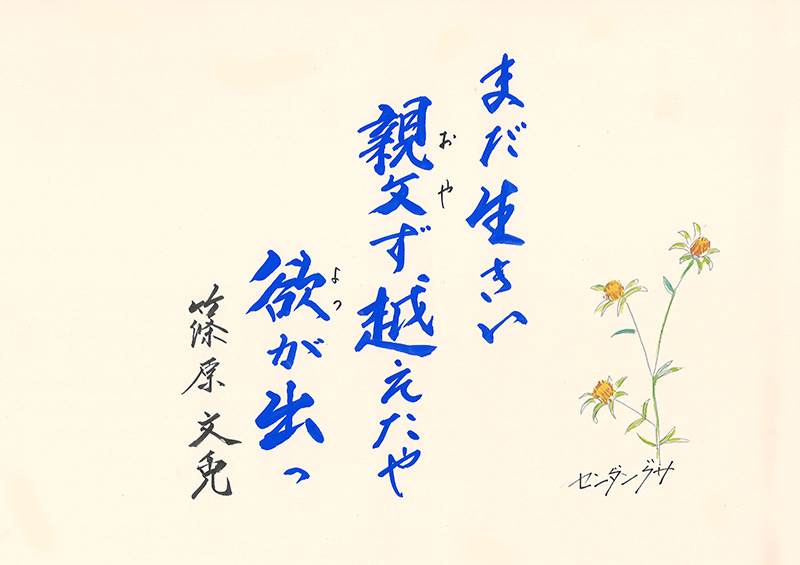 まだ生きい
親父ず、越えたや
おや
欲が出っ
よっ
篠原文兎
センダングサ